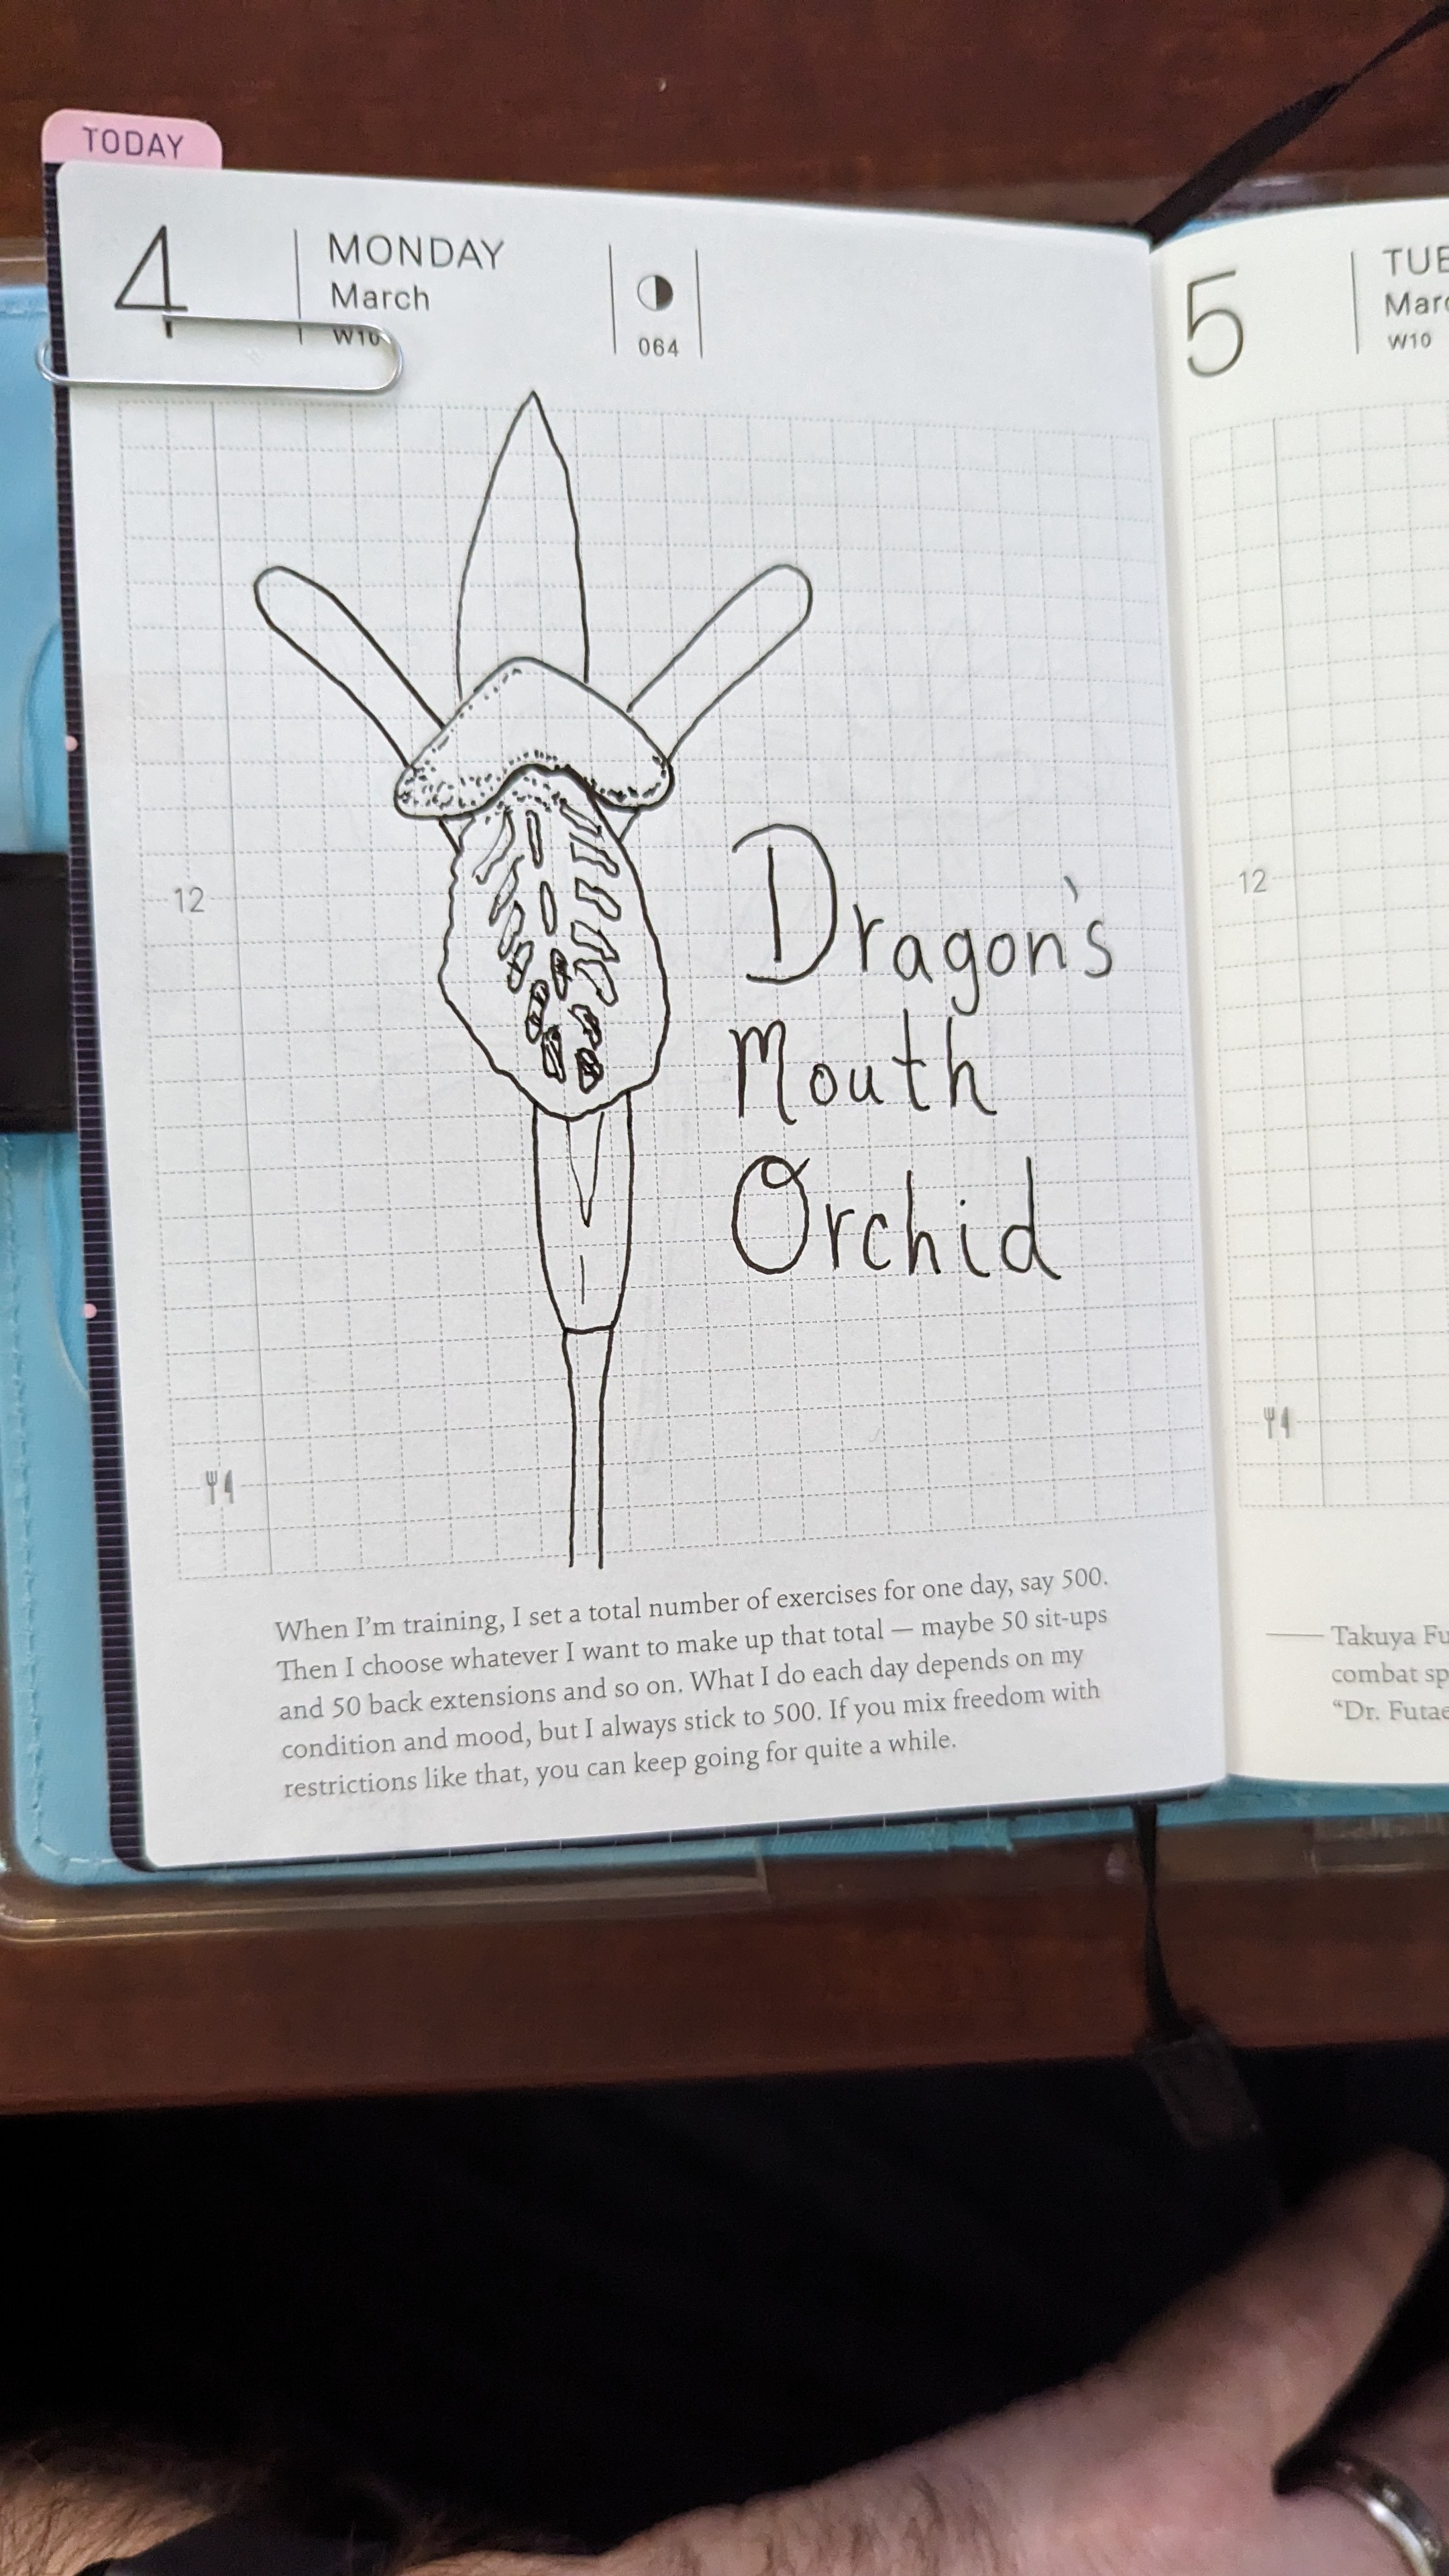 TODAY
4
MONDAY
March
W10
064
12
Dragon's
Mouth
Orchid
When I'm training, I set a total number of exercises for one day, say 500.
Then I choose whatever I want to make up that total — maybe 50 sit-ups
and 50 back extensions and so on. What I do each day depends on my
condition and mood, but I always stick to 500. If you mix freedom with
restrictions like that, you can keep going for quite a while.
5
TUE
Marc
W10
12
Takuya Fu
combat sp
“Dr. Futae